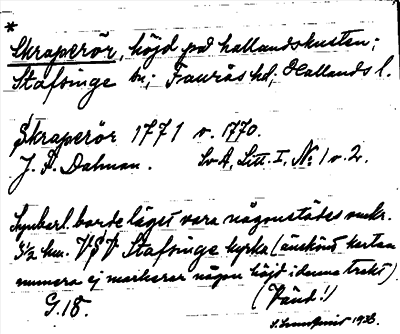 *
Skraperör, höjd på hallandskusten;
Stafsinge sn; Faurås hd; Hallands l.
Skraperör 1771 o. 1770.
J. P. Dalman. LvA, Litt. I, № 1 o. 2.
Synbarl. borde läget vara någonstädes omkr.
3½ km. VSV Stafsinge kyrka (änskönt kartan
numera ej markerar någon höjd i denna trakt)
G. 18. (Vänd!)
1923.